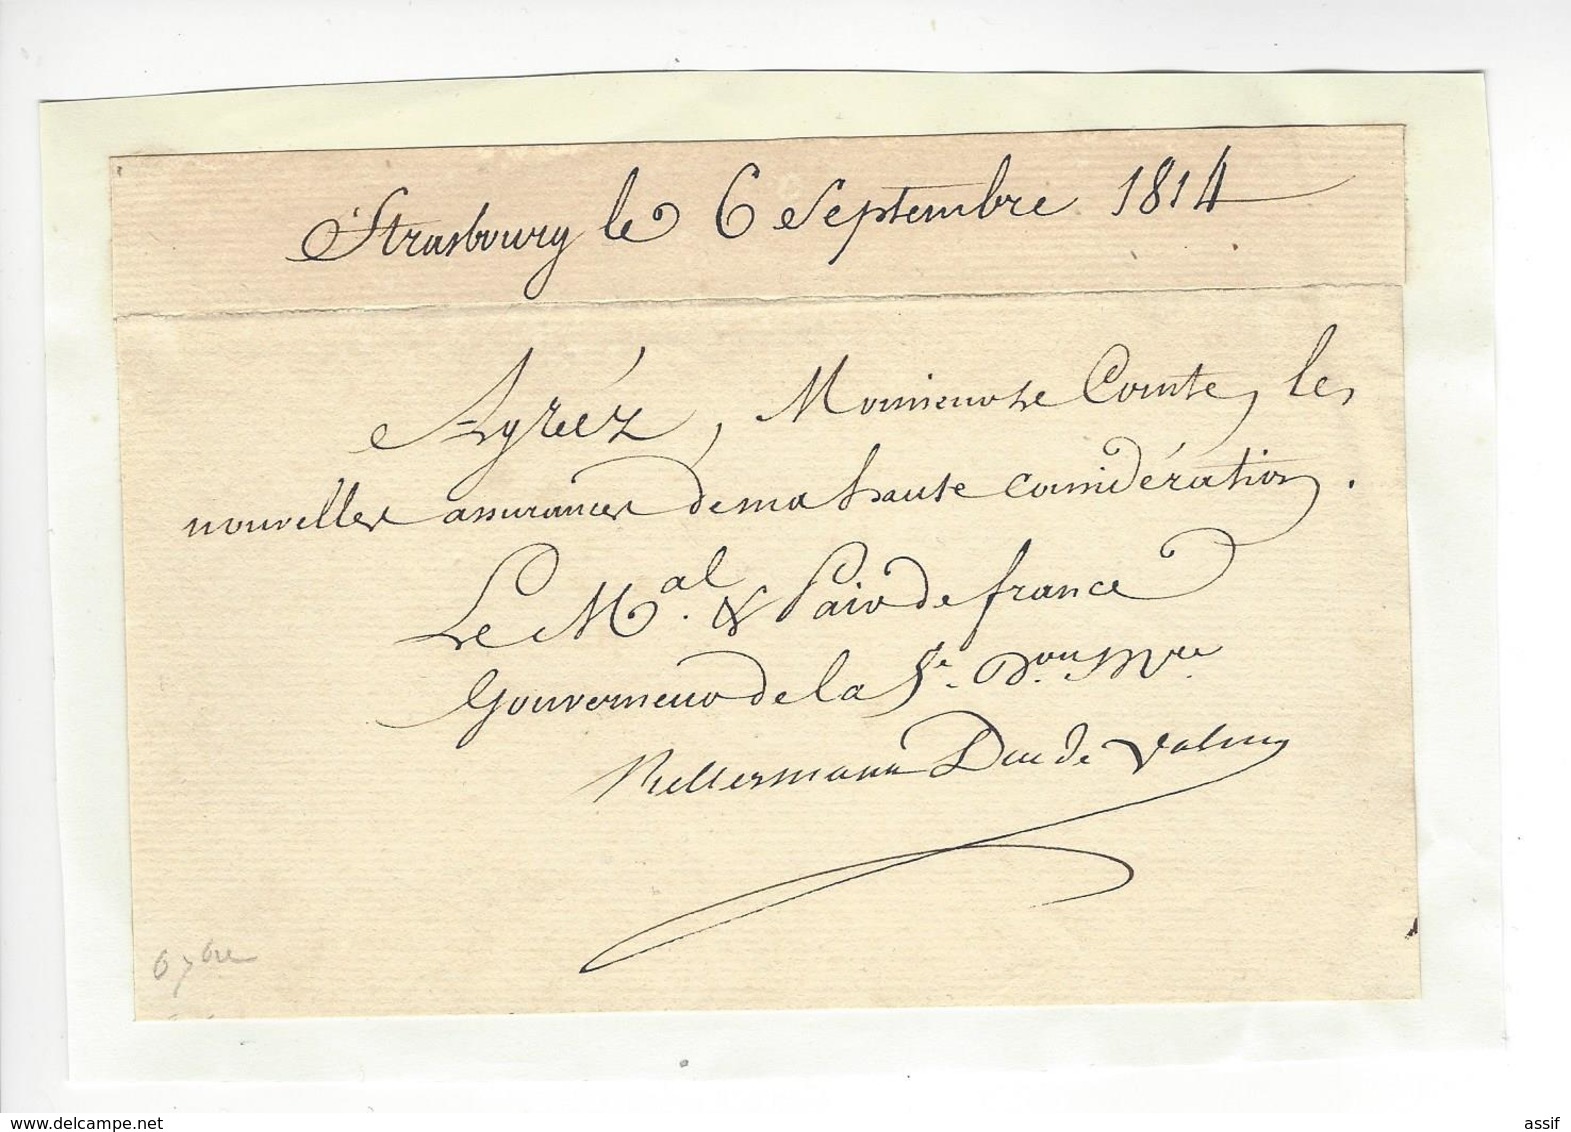 Strasbourg le 6 Septembre 1814
Agréez, Monsieur le Comte, les
nouvelles assurances de ma haute considération.
Le M.al & Pair de france
Gouverneur de la 5e. Don Mre.
Kellermann Duc de Valmy
6 7bre
www.delcampe.net
assif